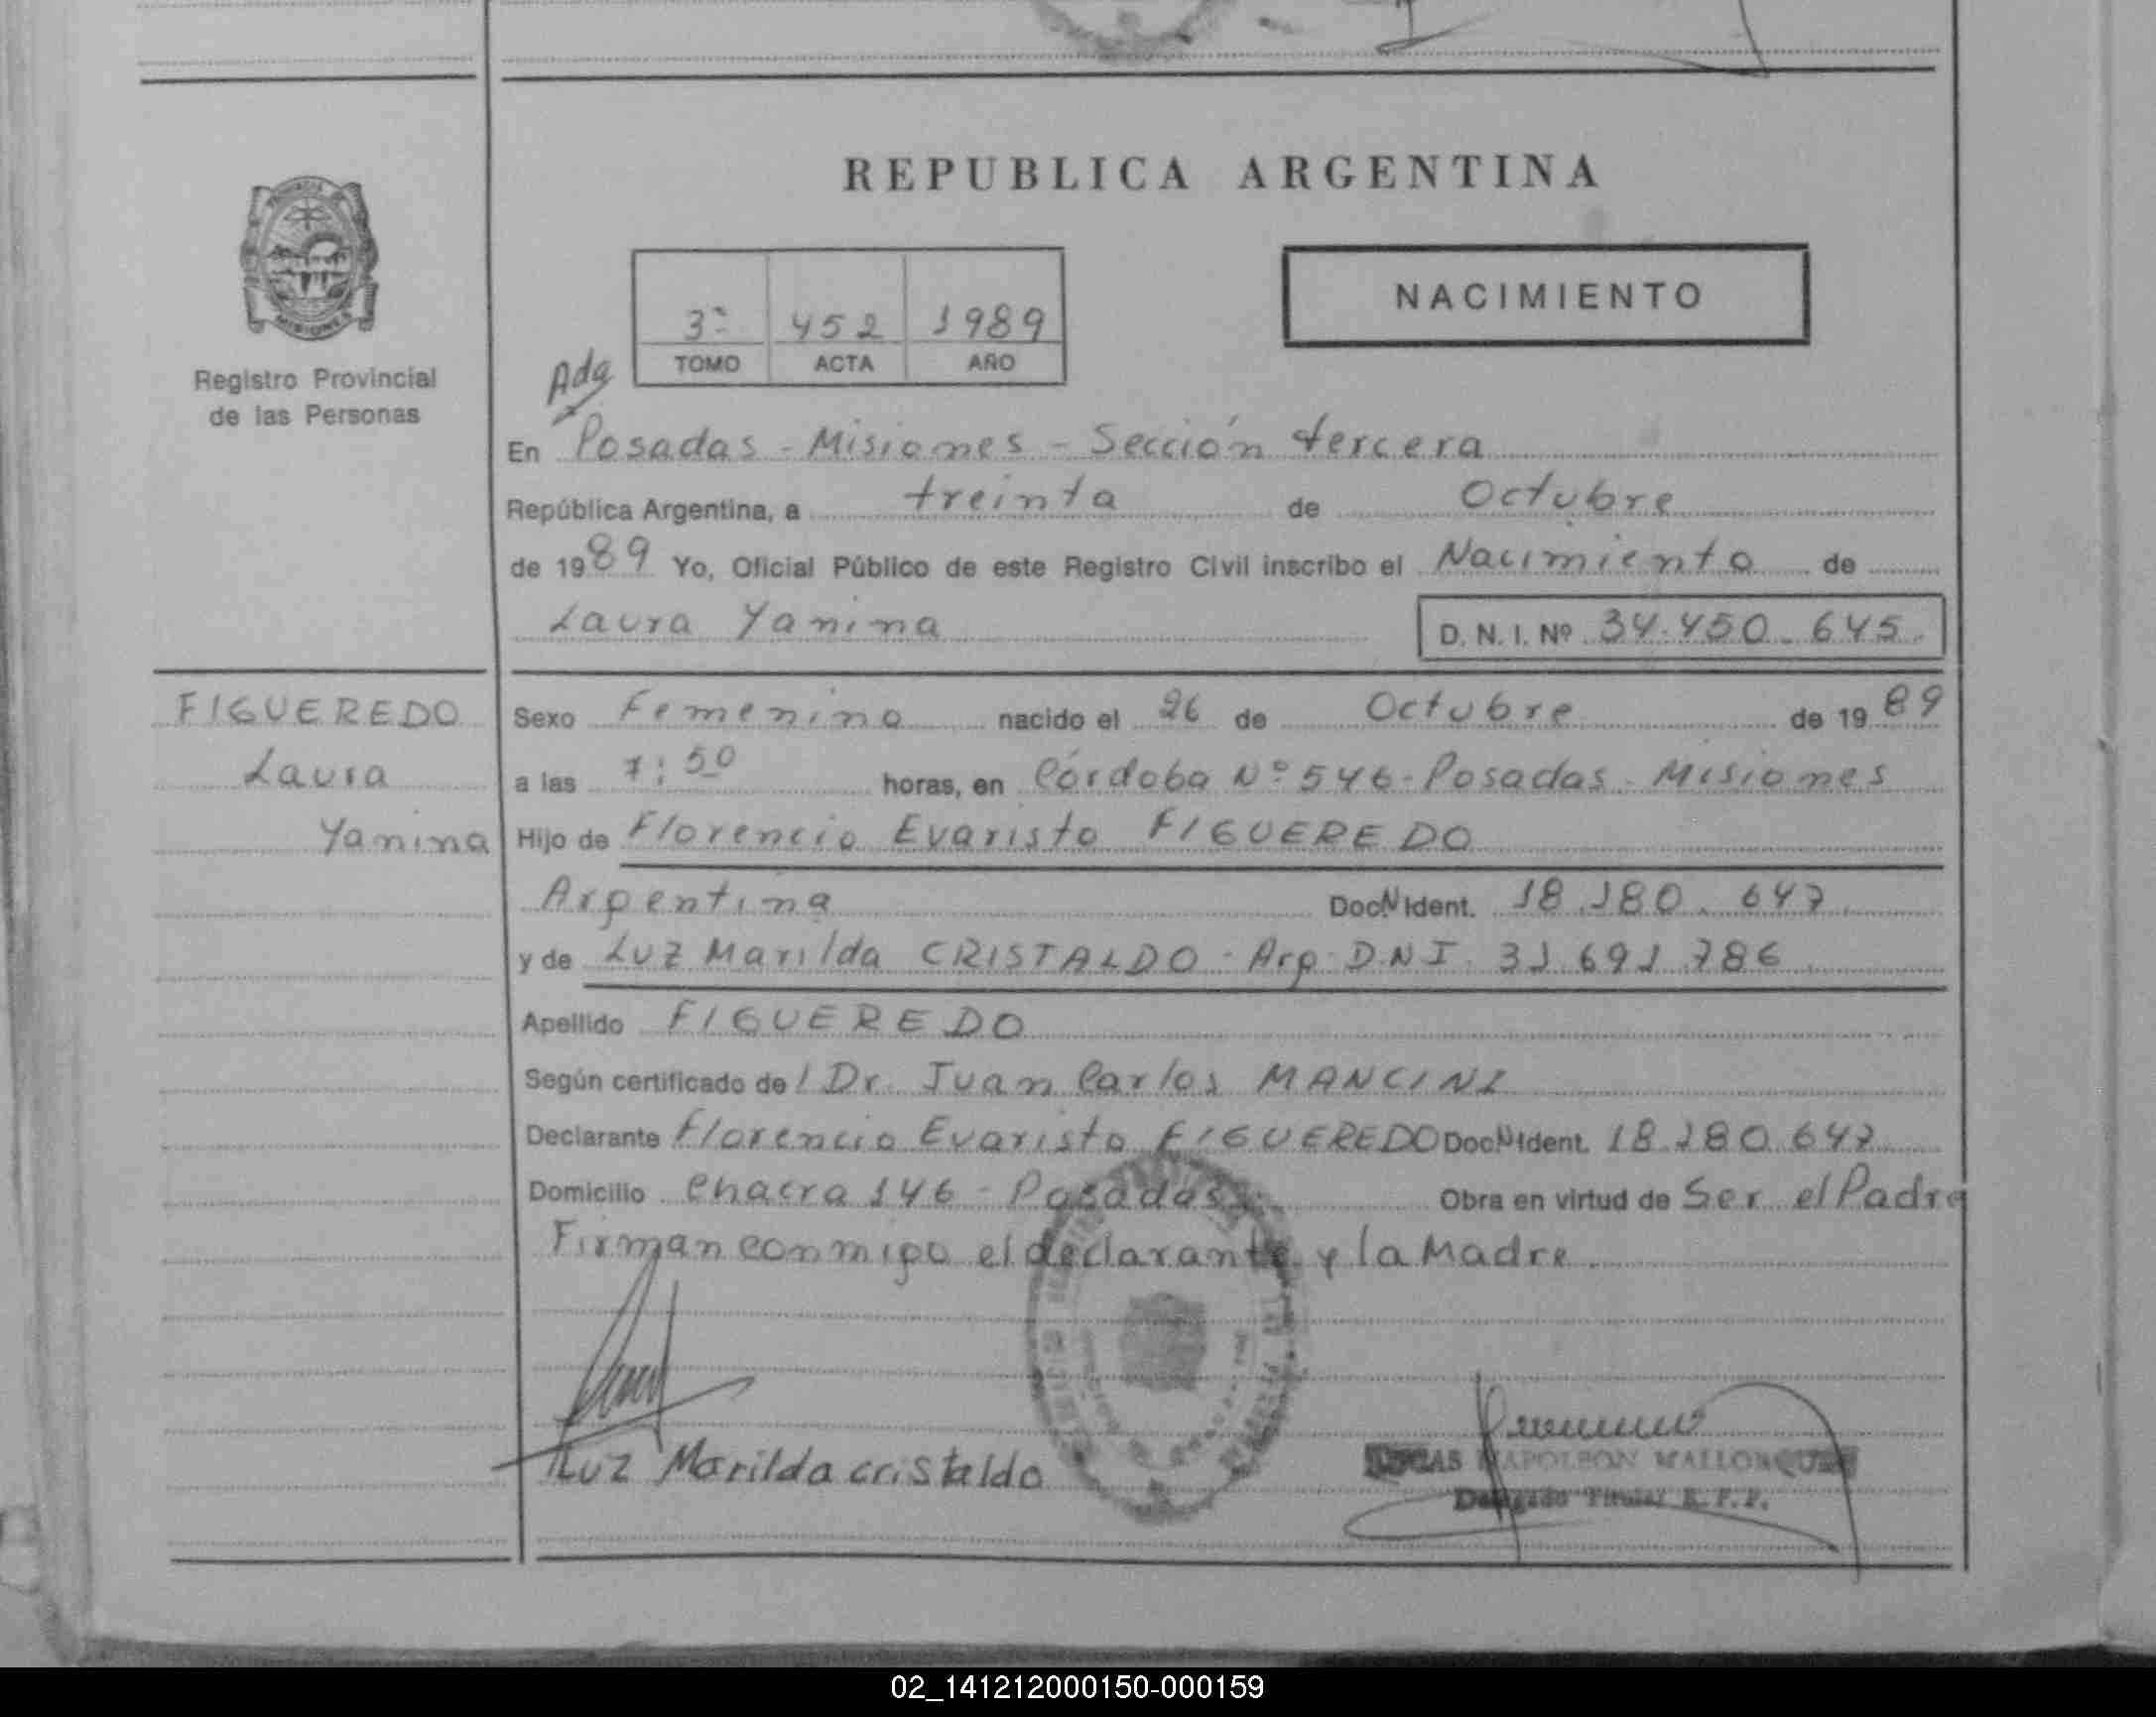 REPUBLICA ARGENTINA
MISIONES
Registro Provincial
de las Personas
3º 452 1989
TOMO ACTA AÑO
NACIMIENTO
Adq
En Posadas - Misiones - Sección tercera
República Argentina, a treinta de Octubre
de 1989 Yo, Oficial Público de este Registro Civil inscribo el Nacimiento de
Laura Yanina
D. N. I. Nº 34.450.645.
FIGUEREDO
Laura
Yanina
Sexo Femenino nacido el 26 de Octubre de 1989
a las 7:50 horas, en Córdoba Nº 546 - Posadas - Misiones
Hijo de Florencio Evaristo FIGUEREDO
Argentina Doc. N Ident. 18.180.647.
y de Luz Marilda CRISTALDO - Arg. D.N.I. 31.691.786.
Apellido FIGUEREDO
Según certificado del Dr. Juan Carlos MANCINI
Declarante Florencio Evaristo FIGUEREDO Doc. N Ident. 18.180.647
Domicilio Chacra 146 - Posadas. Obra en virtud de Ser el Padre
Firman conmigo el declarante y la Madre.
Luz Marilda cristaldo
NAPOLEON MALLORQUIN
Delegado Titular R. P. P.
02_141212000150-000159